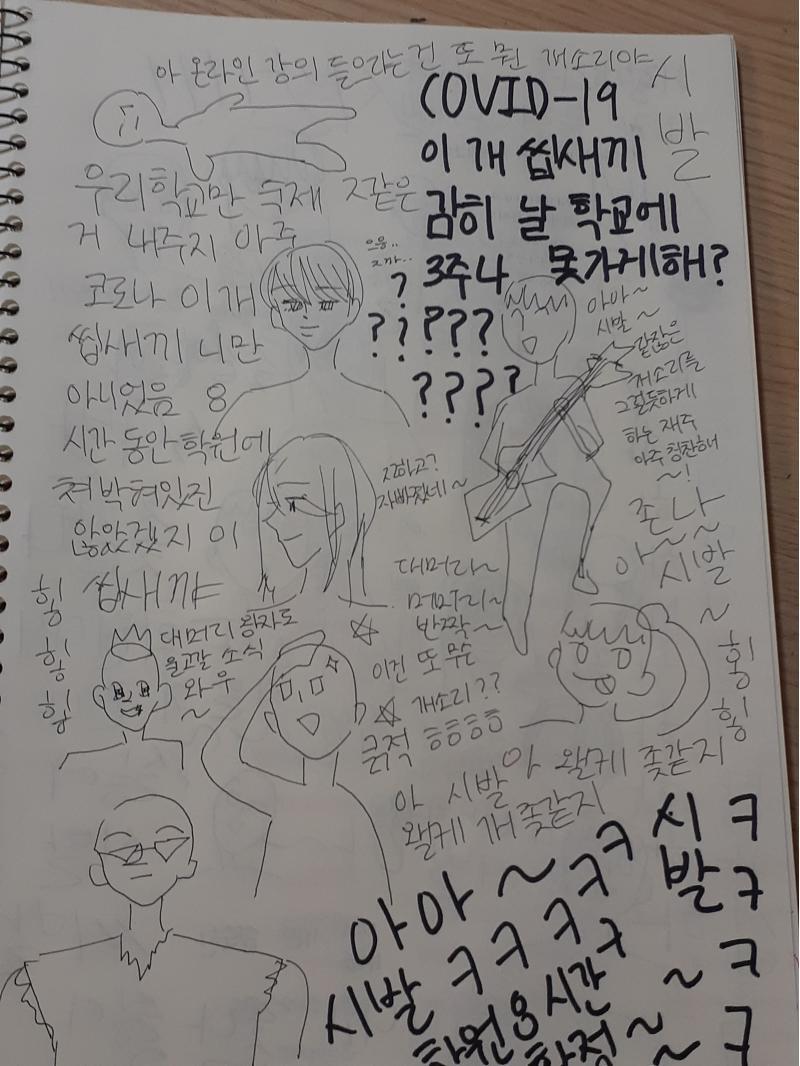 아 온라인 강의 들으라는건 또 뭔 개소리야
시
발
COVID-19
이 개 씹새끼
감히 날 학교에
3주나 못가게해?
?
? ? ? ? ?
? ? ? ?
우리학교만 숙제 ㅈ같은
거 내주지 아주
코로나 이 개
씹새끼 니만
아니었음 8
시간 동안 학원에
쳐 박혀있진
않았겠지 이
씹새꺄
으응..
ㅈ까..
아아~
시발~
같잖은
개소리를
그럴듯하게
하는 재주
아주 칭찬해
~!
존나
아~ 시발
~
힝
힝
자빠졌네~
대머리~
머머리~
반짝~
이건 또 무슨
개소리??
큽적 흥흥흥흥
힝
힝
힝
대머리 왕자도
울고갈 소식
와우
~
아 시발 아 왤케 좆같지
왤케 개좆같지
아아~ ㅋㅋ 시 ㅋ
발 ㅋ
시발 ㅋㅋㅋㅋ ~ ㅋ
학원 8시간 ~ ㅋ